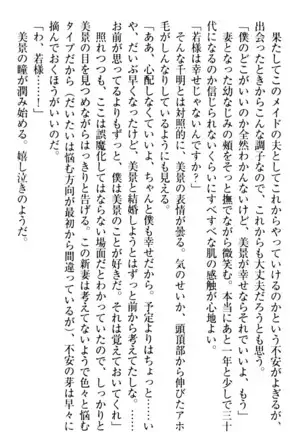 果たしてこのメイドの夫としてこれからやっていけるのかという不安がよぎるが、
出会ったときからこんな調子なので、これからも大丈夫だろうとも思う。
「僕のどこがいいのか全然わかんないけど、美景が幸せならいいよ、もう」
妻となった幼なじみの頬をそっと撫でながら微笑む。本当にあと一年と少しで三十
代になるのか信じられないくらいにすべすべな肌の感触が心地よい。
「若様は幸せじゃないんですか？」
そんな千明とは対照的に、美景の表情が曇る。気のせいか、頭頂部から伸びたアホ
毛がしんなりしているようにも見える。
「ああ、心配しなくていいよ、ちゃんと僕も幸せだから。予定よりはちょっと……い
や、だいぶ早くなったけど、美景と結婚しようとはずっと前から考えてたしな。……
お前が思ってるよりもずっと、僕は美景のことが好きだ。それは覚えておいてくれ」
照れつつも、ここは誤魔化してはならない場面だとわかっていたので、しっかりと
美景の目を見つめながらはっきりと告げる。この新妻は考えてないようで色々と悩む
タイプだから（だいたいは悩む方向が最初から間違っているが）、不安の芽は早々に
摘んでおくほうがいいのだ。
「わ、若様……！」
美景の瞳が潤み始める。嬉し泣きのようだ。